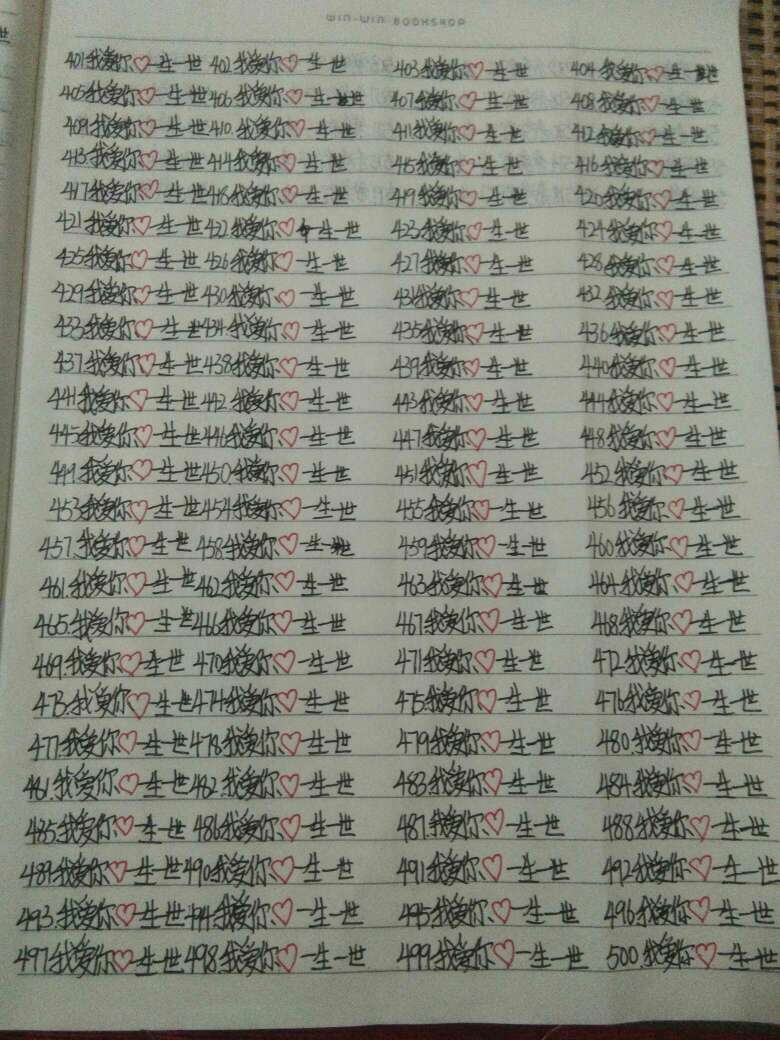 WIN-WIN BOOKSHOP
401.我爱你♡一生一世 402.我爱你♡一生一世 403.我爱你♡一生一世 404.我爱你♡一生一世
405.我爱你♡一生一世 406.我爱你♡一生一世 407.我爱你♡一生一世 408.我爱你♡一生一世
409.我爱你♡一生一世 410.我爱你♡一生一世 411.我爱你♡一生一世 412.我爱你♡一生一世
413.我爱你♡一生一世 414.我爱你♡一生一世 415.我爱你♡一生一世 416.我爱你♡一生一世
417.我爱你♡一生一世 418.我爱你♡一生一世 419.我爱你♡一生一世 420.我爱你♡一生一世
421.我爱你♡一生一世 422.我爱你♡一生一世 423.我爱你♡一生一世 424.我爱你♡一生一世
425.我爱你♡一生一世 426.我爱你♡一生一世 427.我爱你♡一生一世 428.我爱你♡一生一世
429.我爱你♡一生一世 430.我爱你♡一生一世 431.我爱你♡一生一世 432.我爱你♡一生一世
433.我爱你♡一生一世 434.我爱你♡一生一世 435.我爱你♡一生一世 436.我爱你♡一生一世
437.我爱你♡一生一世 438.我爱你♡一生一世 439.我爱你♡一生一世 440.我爱你♡一生一世
441.我爱你♡一生一世 442.我爱你♡一生一世 443.我爱你♡一生一世 444.我爱你♡一生一世
445.我爱你♡一生一世 446.我爱你♡一生一世 447.我爱你♡一生一世 448.我爱你♡一生一世
449.我爱你♡一生一世 450.我爱你♡一生一世 451.我爱你♡一生一世 452.我爱你♡一生一世
453.我爱你♡一生一世 454.我爱你♡一生一世 455.我爱你♡一生一世 456.我爱你♡一生一世
457.我爱你♡一生一世 458.我爱你♡一生一世 459.我爱你♡一生一世 460.我爱你♡一生一世
461.我爱你♡一生一世 462.我爱你♡一生一世 463.我爱你♡一生一世 464.我爱你♡一生一世
465.我爱你♡一生一世 466.我爱你♡一生一世 467.我爱你♡一生一世 468.我爱你♡一生一世
469.我爱你♡一生一世 470.我爱你♡一生一世 471.我爱你♡一生一世 472.我爱你♡一生一世
473.我爱你♡一生一世 474.我爱你♡一生一世 475.我爱你♡一生一世 476.我爱你♡一生一世
477.我爱你♡一生一世 478.我爱你♡一生一世 479.我爱你♡一生一世 480.我爱你♡一生一世
481.我爱你♡一生一世 482.我爱你♡一生一世 483.我爱你♡一生一世 484.我爱你♡一生一世
485.我爱你♡一生一世 486.我爱你♡一生一世 487.我爱你♡一生一世 488.我爱你♡一生一世
489.我爱你♡一生一世 490.我爱你♡一生一世 491.我爱你♡一生一世 492.我爱你♡一生一世
493.我爱你♡一生一世 494.我爱你♡一生一世 495.我爱你♡一生一世 496.我爱你♡一生一世
497.我爱你♡一生一世 498.我爱你♡一生一世 499.我爱你♡一生一世 500.我爱你♡一生一世